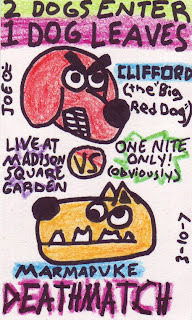 2 DOGS ENTER
1 DOG LEAVES
JOE OK
CLIFFORD
(the "Big
Red Dog)
LIVE AT
MADISON
SQUARE
GARDEN
VS
ONE NITE
ONLY!
(obviously)
MARMADUKE
DEATHMATCH
3-10-7